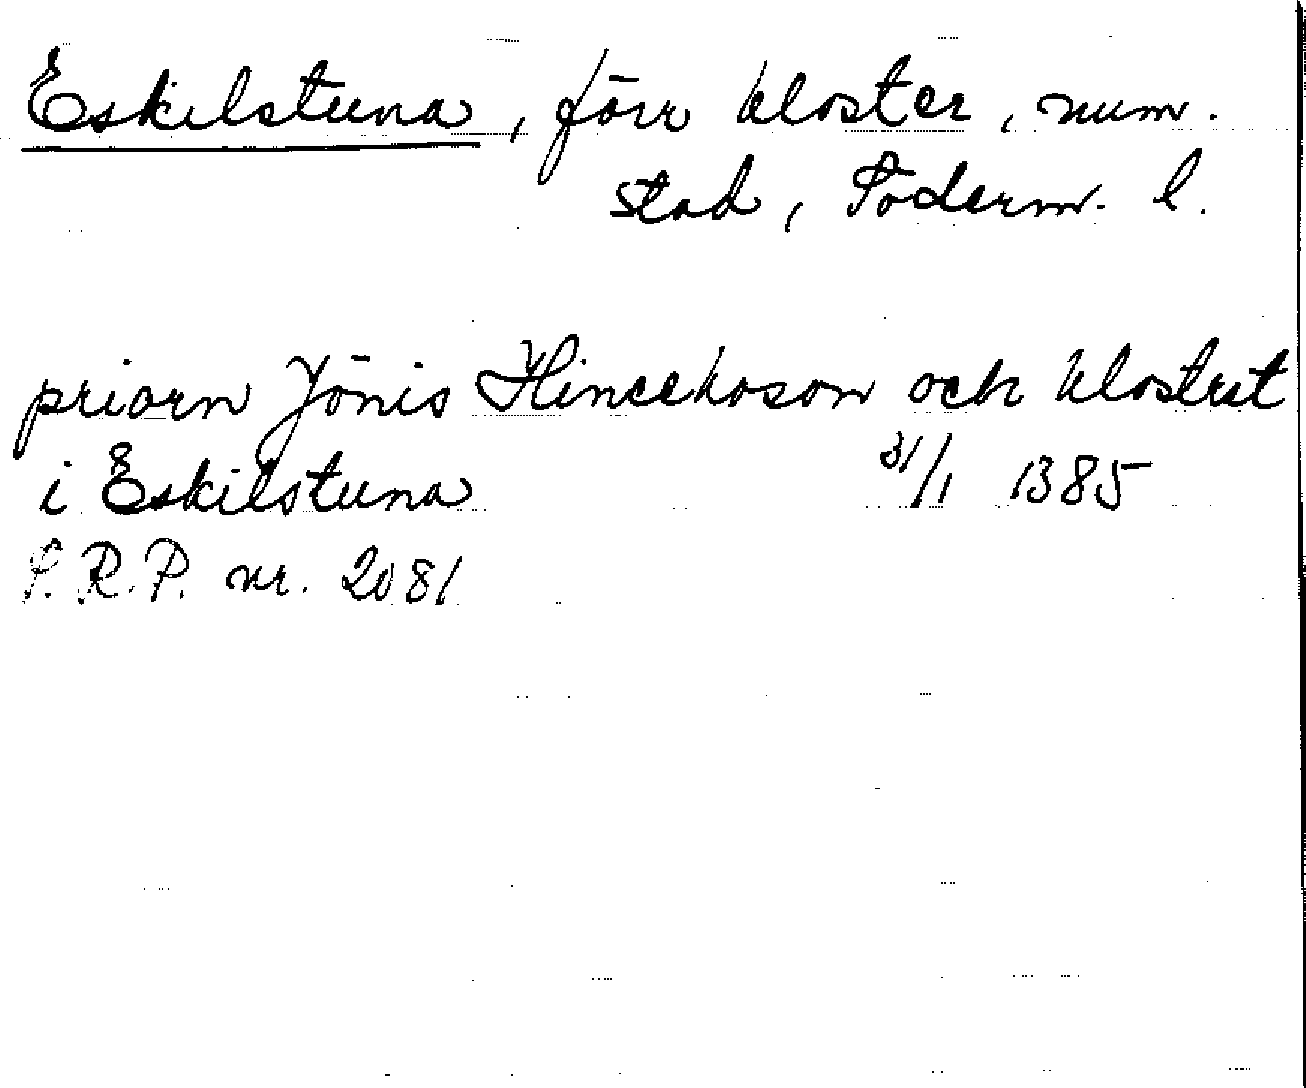 Eskilstuna, förr kloster, num.
stad, Söderm. l.
priorn Jönis Hincekason och klostret
i Eskilstuna 31/1 1385
S.R.P. nr. 2081